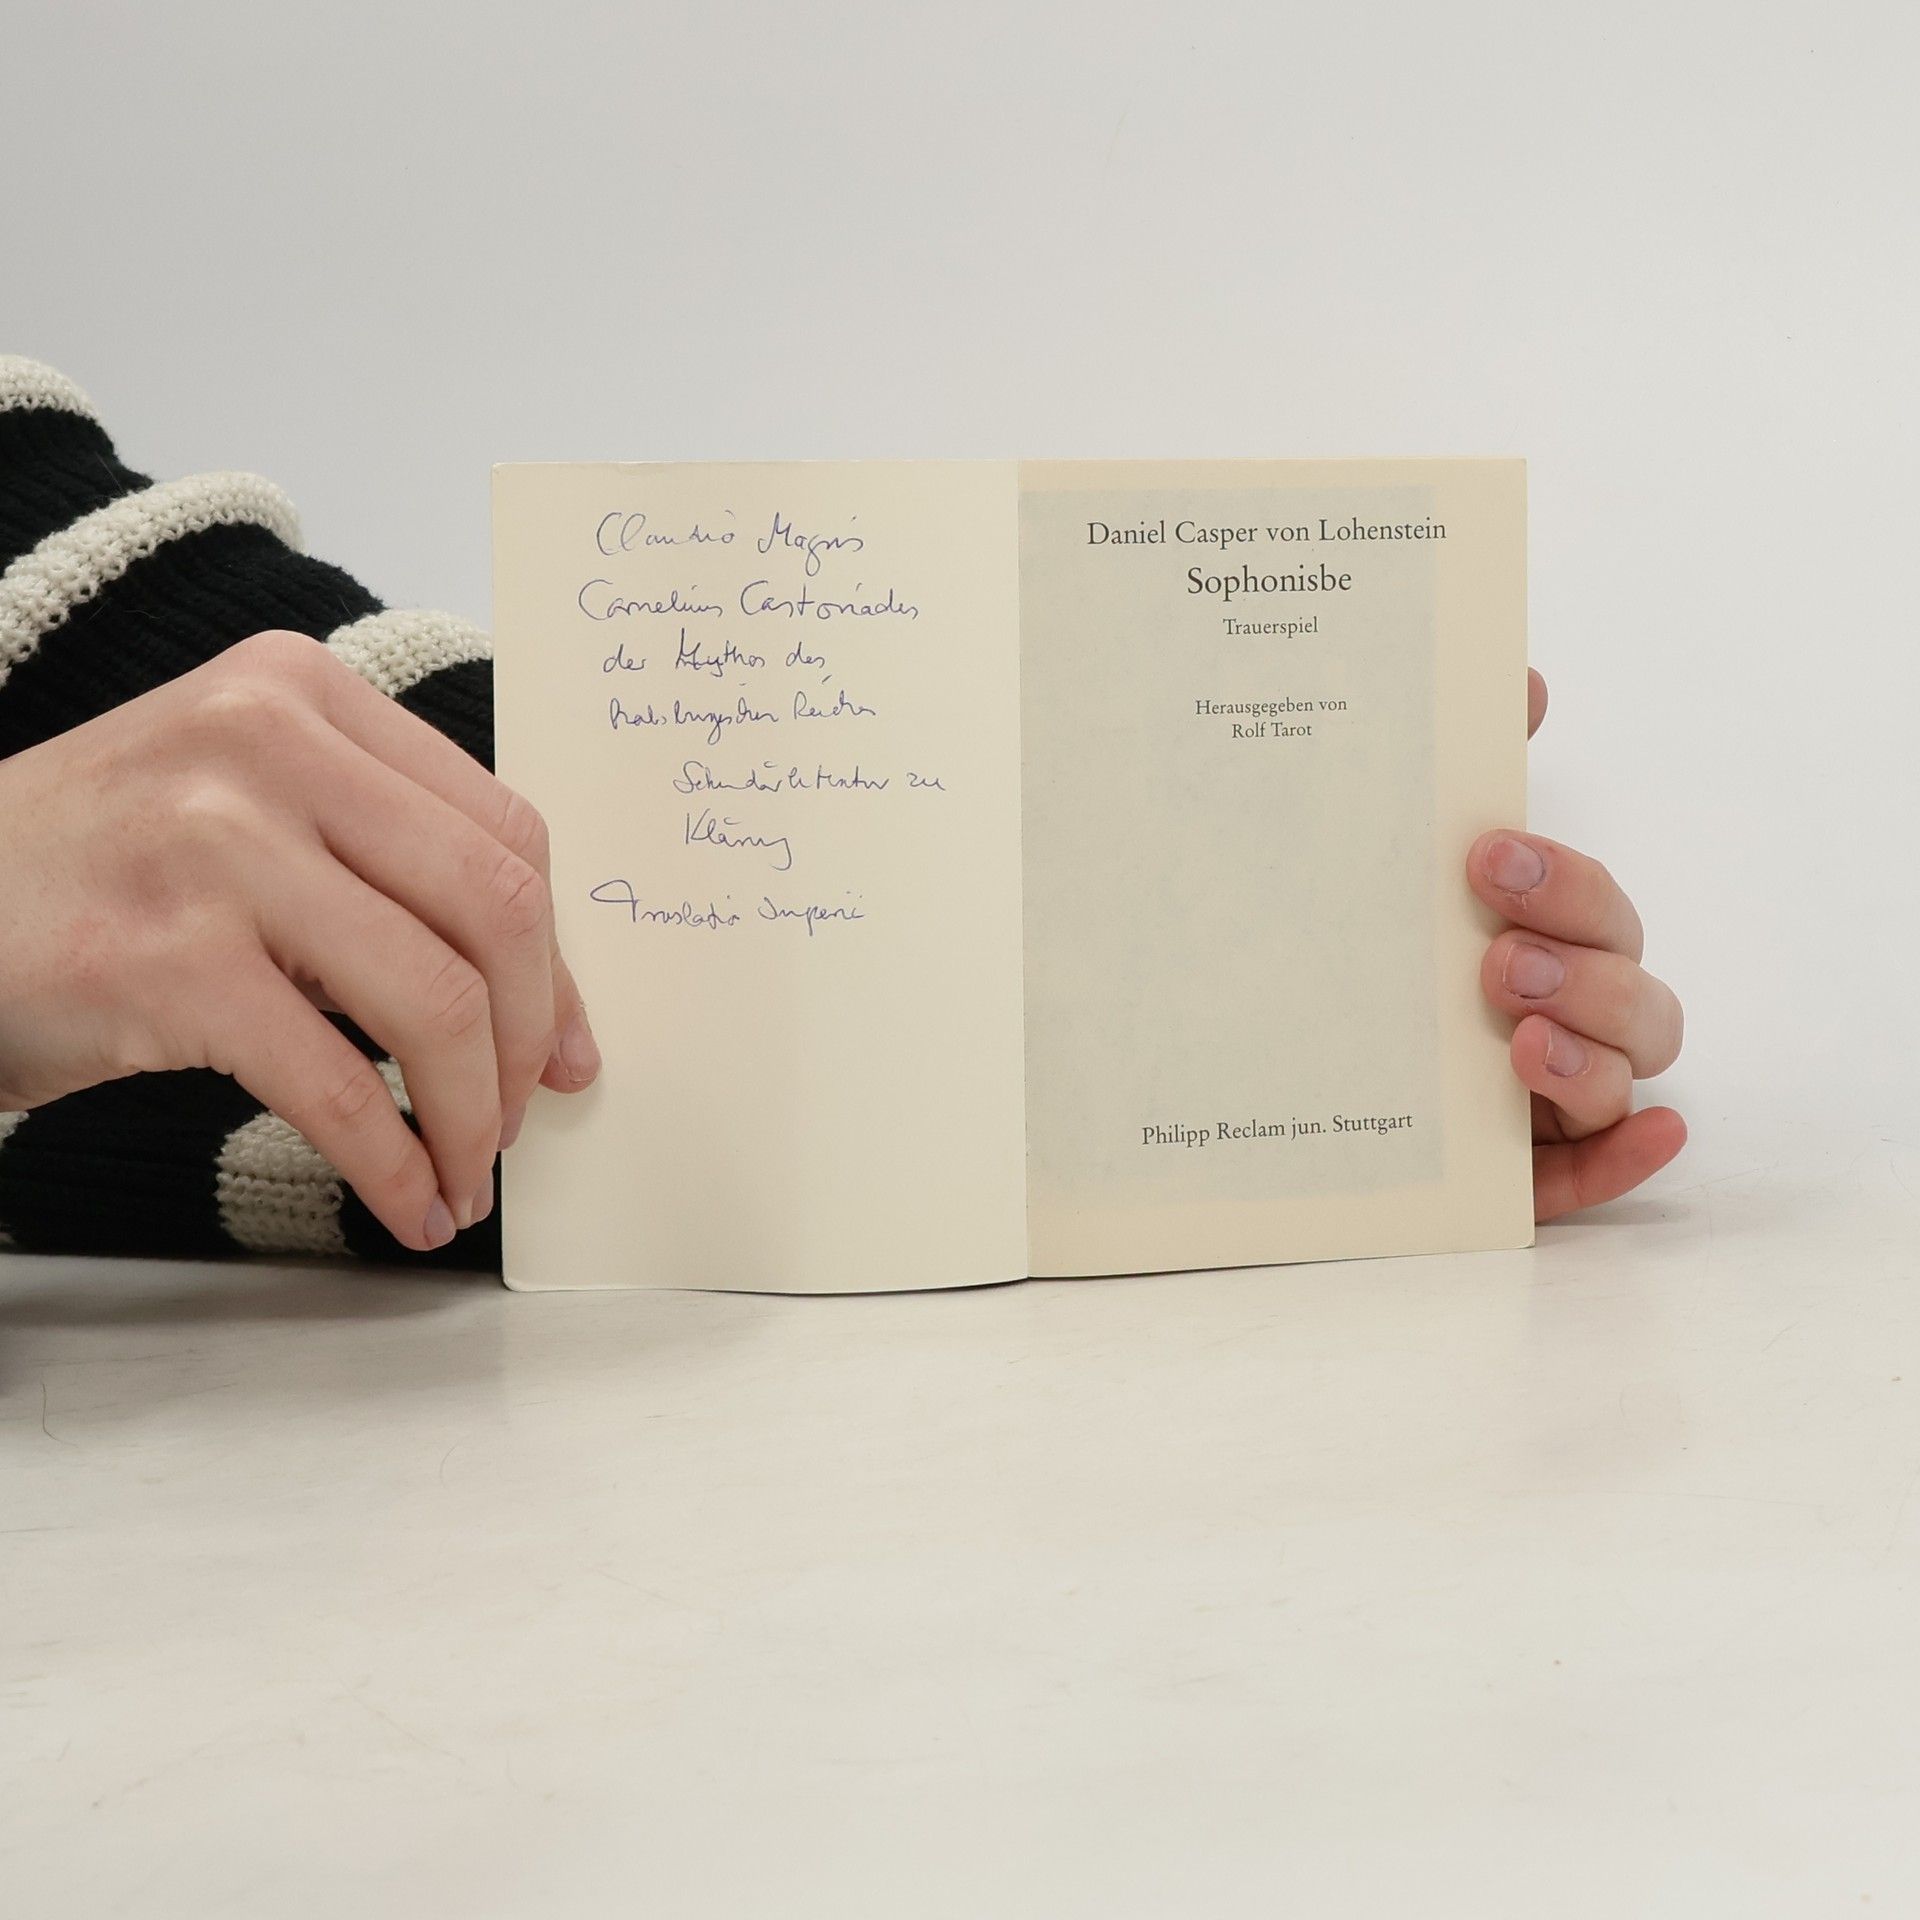 Claudio Magris
Cornelius Castoriades
der Mythos des
habsburgischen Reiches
Sekundärliteratur zu
Klärung
Translatio Imperii
Daniel Casper von Lohenstein
Sophonisbe
Trauerspiel
Herausgegeben von
Rolf Tarot
Philipp Reclam jun. Stuttgart